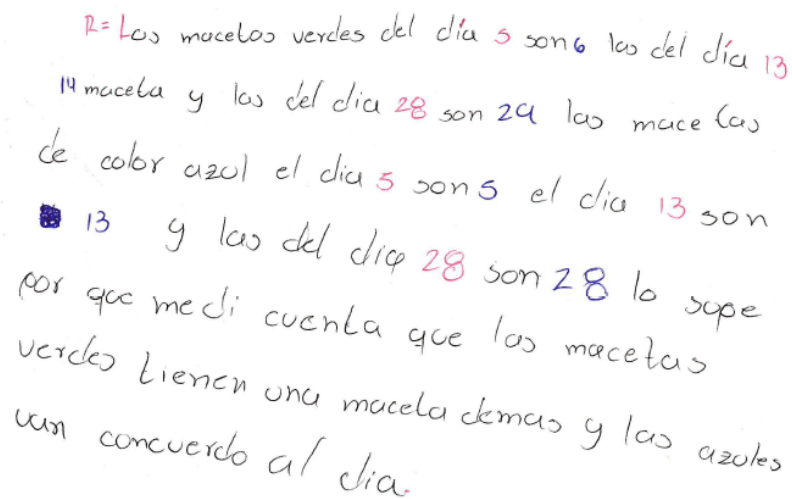 R= Las macetas verdes del día 5 son 6 las del día 13
14 maceta y las del dia 28 son 29 las macetas
de color azul el dia 5 son 5 el dia 13 son
13 y las del dia 28 son 28 lo supe
por que me di cuenta que las macetas
verdes tienen una maceta demas y las azules
van concuerdo al dia.